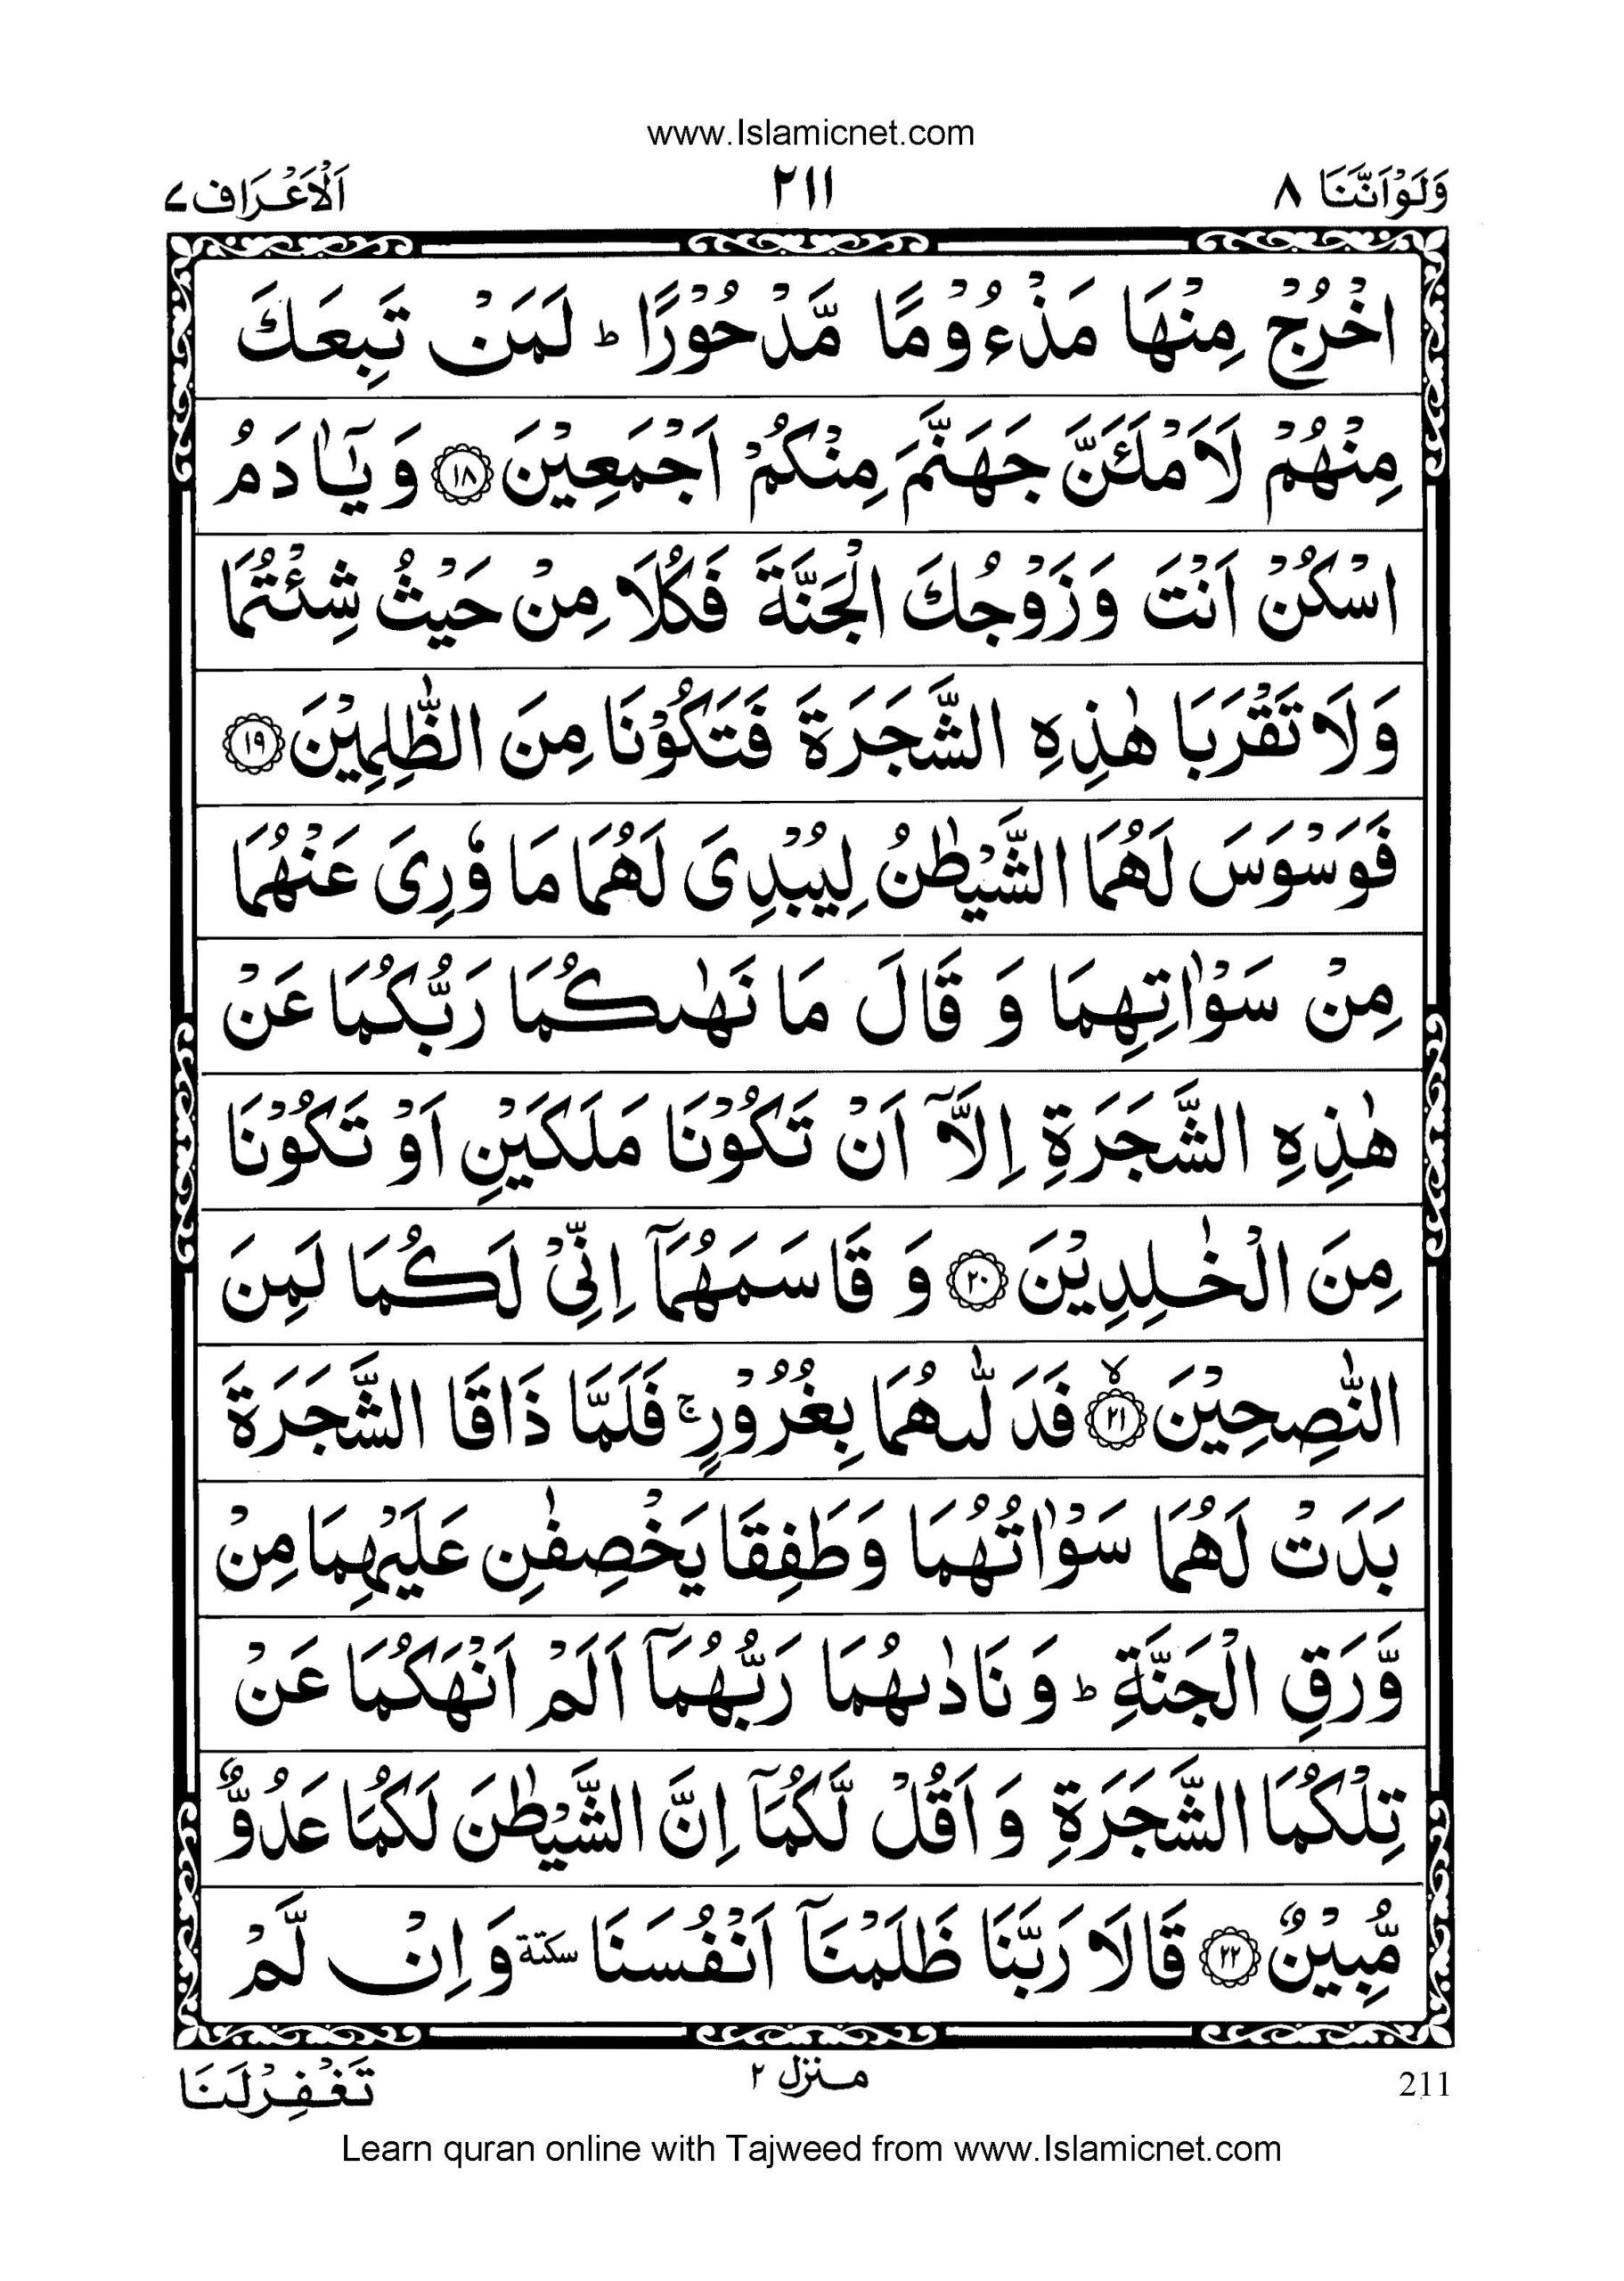 www.Islamicnet.com
وَلَوْاَنَّنَا ٨ ٢١١ اَلْاَعْرَاف ٧
اخْرُجْ مِنْهَا مَذْءُوْمًا مَّدْحُوْرًا ؕ لَمَنْ تَبِعَكَ
مِنْهُمْ لَاَمْلَـَٔنَّ جَهَنَّمَ مِنْكُمْ اَجْمَعِيْنَ ۝١٨ وَيٰۤاٰدَمُ
اسْكُنْ اَنْتَ وَزَوْجُكَ الْجَنَّةَ فَكُلَا مِنْ حَيْثُ شِئْتُمَا
وَلَا تَقْرَبَا هٰذِهِ الشَّجَرَةَ فَتَكُوْنَا مِنَ الظّٰلِمِيْنَ ۝١٩
فَوَسْوَسَ لَهُمَا الشَّيْطٰنُ لِيُبْدِىَ لَهُمَا مَا وٗرِىَ عَنْهُمَا
مِنْ سَوْاٰتِهِمَا وَ قَالَ مَا نَهٰىكُمَا رَبُّكُمَا عَنْ
هٰذِهِ الشَّجَرَةِ اِلَّاۤ اَنْ تَكُوْنَا مَلَكَيْنِ اَوْ تَكُوْنَا
مِنَ الْخٰلِدِيْنَ ۝٢٠ وَ قَاسَمَهُمَاۤ اِنِّىْ لَكُمَا لَمِنَ
النّٰصِحِيْنَ ۝٢١ۙ فَدَلّٰىهُمَا بِغُرُوْرٍ ۚ فَلَمَّا ذَاقَا الشَّجَرَةَ
بَدَتْ لَهُمَا سَوْاٰتُهُمَا وَطَفِقَا يَخْصِفٰنِ عَلَيْهِمَا مِنْ
وَّرَقِ الْجَنَّةِ ؕ وَ نَادٰىهُمَا رَبُّهُمَاۤ اَلَمْ اَنْهَكُمَا عَنْ
تِلْكُمَا الشَّجَرَةِ وَ اَقُلْ لَّكُمَاۤ اِنَّ الشَّيْطٰنَ لَكُمَا عَدُوٌّ
مُّبِيْنٌ ۝٢٢ قَالَا رَبَّنَا ظَلَمْنَاۤ اَنْفُسَنَا سكتة وَ اِنْ لَّمْ
211 منزل ٢ تَغْفِرْلَنَا
Learn quran online with Tajweed from www.Islamicnet.com